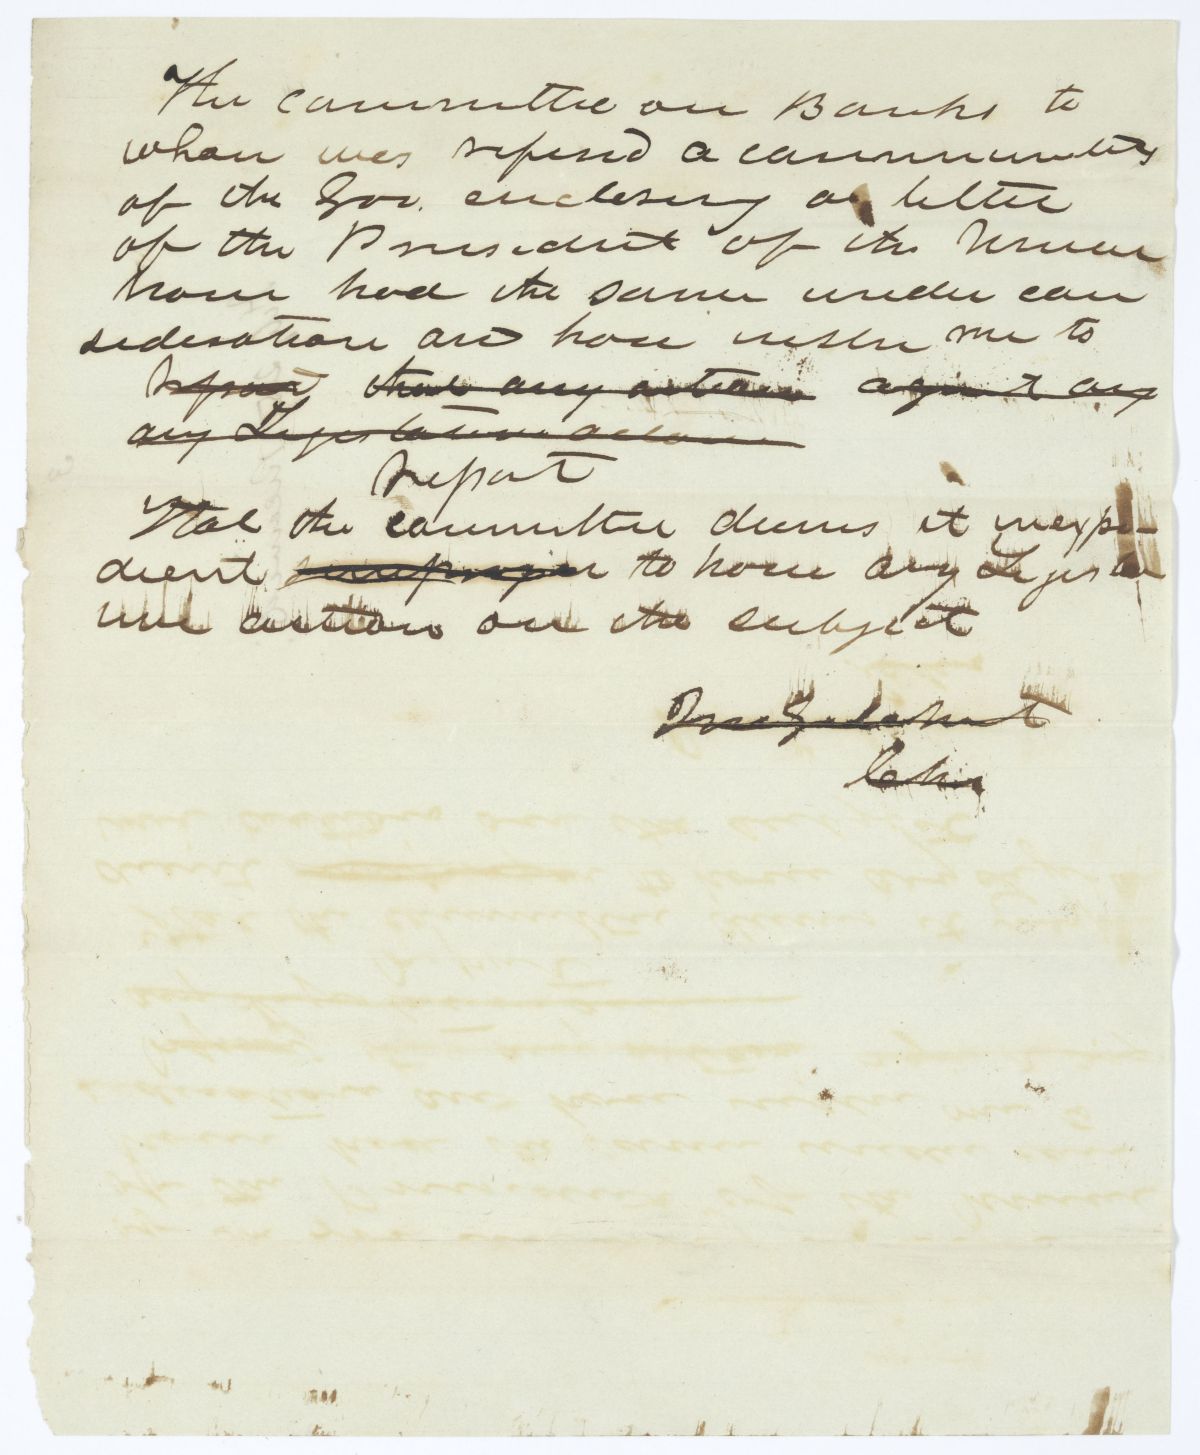 The committee on Banks to
whom was refered a communicatn
of the Gov. enclosing a letter
of the President of the
have had the same under con
sideration and have instr me to
report that any action against any
any Legislative action
report
That the committee deems it inexpe-
dient to have any Legisla
tive action on the subject
Chr